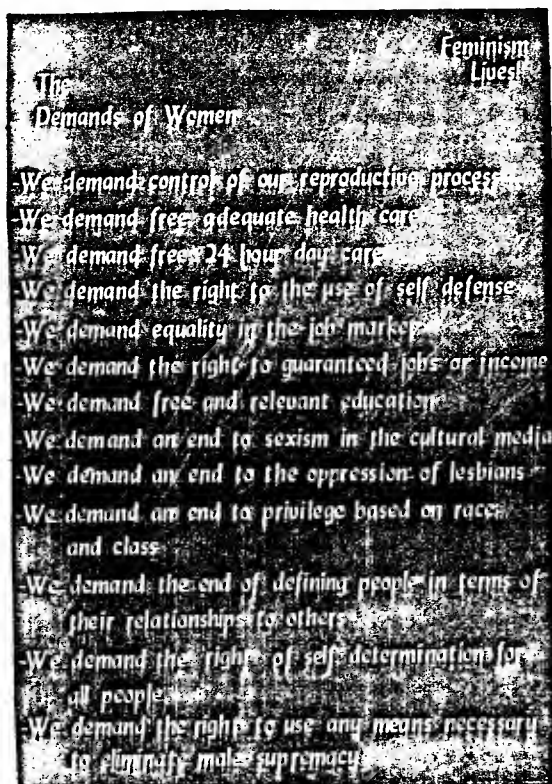 Feminism
Lives!
The
Demands of Women
-We demand control of our reproductive process
-We demand free adequate health care
-We demand free 24 hour day care
-We demand the right to the use of self defense
-We demand equality in the job market
-We demand the right to guaranteed jobs or income
-We demand free and relevant education
-We demand an end to sexism in the cultural media
-We demand an end to the oppression of lesbians
-We demand an end to privilege based on race
and class
-We demand the end of defining people in terms of
their relationships to others
-We demand the right of self determination for
all people
-We demand the right to use any means necessary
to eliminate male supremacy